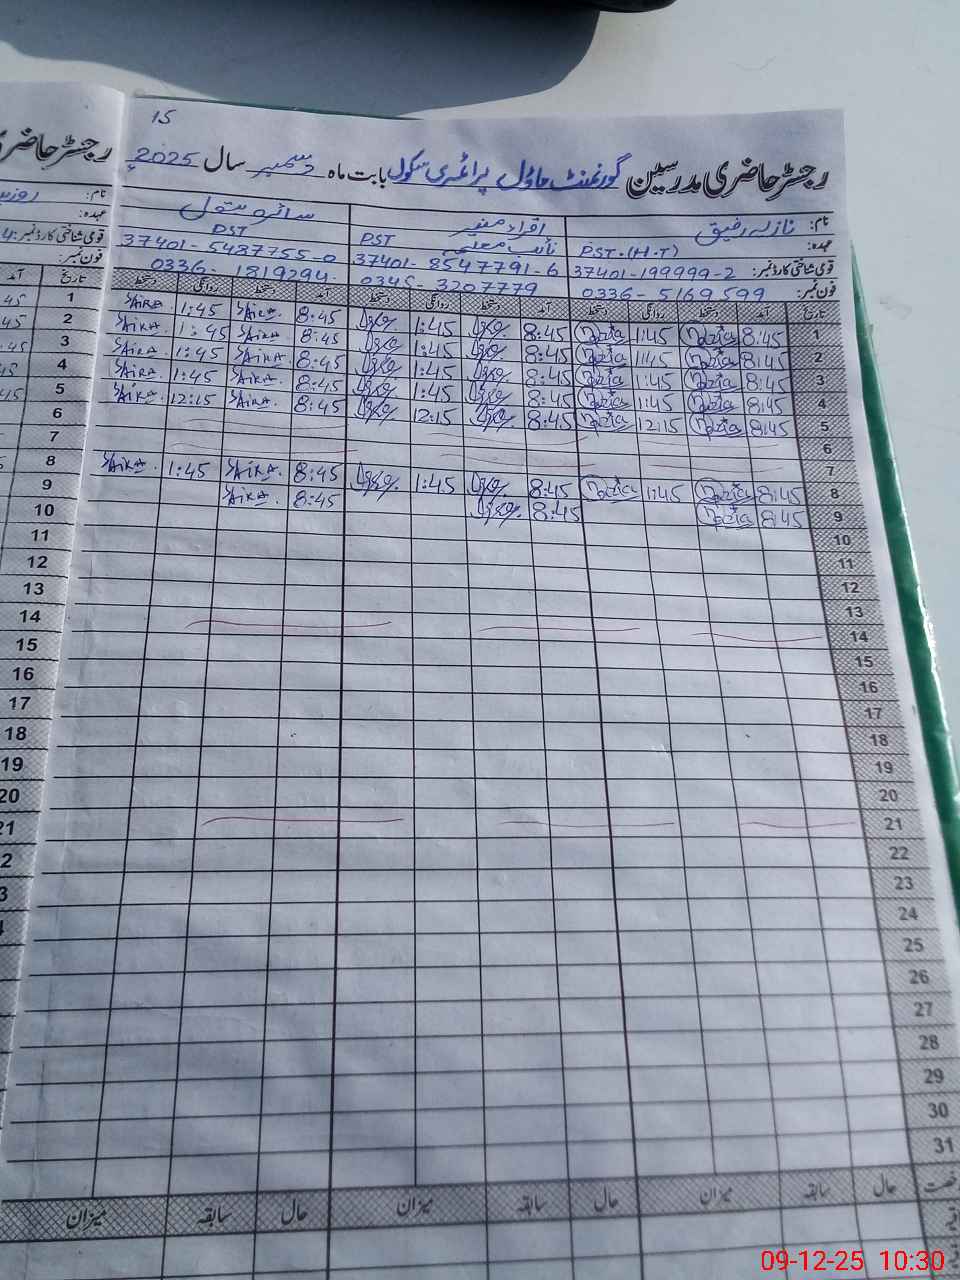 15
رجسٹر حاضری مدرسین گورنمنٹ ماڈل پرائمری سکول بابت ماہ دسمبر سال 2025
نام: نازلہ رفیق
عہدہ: PST.(H.T) نائب معلمہ PST PST
قومی شناختی کارڈ نمبر: 37401-199999-2 37401-8547791-6 37401-5487755-0
فون نمبر: 0336-5169599 0345-3207779 0336-1819294
تاریخ آمد دستخط روانگی دستخط آمد دستخط روانگی دستخط آمد دستخط روانگی دستخط تاریخ
1 8:45 Nazia 1:45 Nazia 8:45 1:45 8:45 SAIRA 1:45 SAIRA 1
2 8:45 Nazia 1:45 Nazia 8:45 1:45 8:45 SAIRA 1:45 SAIRA 2
3 8:45 Nazia 1:45 Nazia 8:45 1:45 8:45 SAIRA 1:45 SAIRA 3
4 8:45 Nazia 1:45 Nazia 8:45 1:45 8:45 SAIRA 1:45 SAIRA 4
5 8:45 Nazia 12:15 Nazia 8:45 12:15 8:45 SAIRA 12:15 SAIRA 5
6 6
7 7
8 8:45 Nazia 1:45 Nazia 8:45 1:45 8:45 SAIRA 1:45 SAIRA 8
9 8:45 Nazia 8:45 8:45 SAIRA 9
10 10
11 11
12 12
13 13
14 14
15 15
16 16
17 17
18 18
19 19
20 20
21 21
22
23
24
25
26
27
28
29
30
31
حال سابقہ میزان حال سابقہ میزان حال سابقہ میزان
09-12-25 10:30